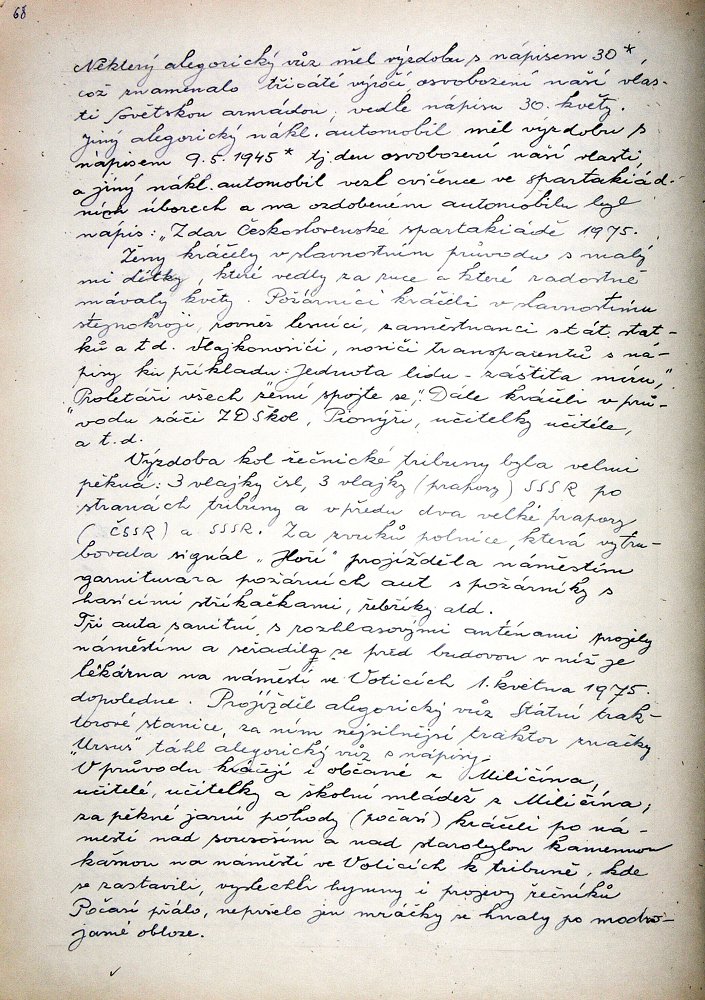 68
Některý alegorický vůz měl výzdobu s nápisem 30*,
což znamenalo třicáté výročí osvobození naší vlas-
ti Sovětskou armádou, vedle nápisu 30. květy.
Jiný alegorický nákl. automobil měl výzdobu s
nápisem 9.5.1945* tj. den osvobození naší vlasti,
a jiný nákl. automobil vezl cvičence ve spartakiád-
ních úborech a na ozdobeném automobilu byl
nápis: „Zdar Československé spartakiádě 1975.
Ženy kráčely v slavnostním průvodu s malý
mi dětky, které vedly za ruce a které radostně
mávaly květy. Požárníci kráčeli v slavnostním
stejnokroji, rovněž lesníci, zaměstnanci stát. stat-
ků a t d. Vlajkonosiči, nosiči transparentů s ná-
pisy ku příkladu: Jednota lidu - záštita míru,"
"Proletáři všech zemí spojte se,". Dále kráčeli v prů-
vodu žáci ZDŠkol, Pionýři, učitelky učitéle,
a t. d.
Výzdoba kol řečnické tribuny byla velmi
pěkná: 3 vlajky čsl, 3 vlajky (prapory) SSSR po
stranách tribuny a vpředu dva velké prapory
(ČSSR) a SSSR. Za zvuků polnice, která vytru-
bovala signál „Hoří" projížděla náměstím
garnitura požárních aut s požárníky s
hasícími stříkačkami, řebříky atd.
Tři auta sanitní s rozhlasovými anténami projely
náměstím a seřadily se před budovou v níž je
lékárna na náměstí ve Voticích 1. května 1975.
dopoledne. Projížděl alegorický vůz Státní trak-
torové stanice, za ním nejsilnější traktor značky
"Ursus" táhl alegorický vůz s nápisy.
V průvodu kráčejí i občané z Miličína,
učitelé, učitelky a školní mládež z Miličína;
za pěkné jarní pohody (počasí) kráčeli po ná-
městí nad sousoším a nad starobylou kamennou
kašnou na náměstí ve Voticích k tribuně, kde
se zastavili, vyslechli hymny i projevy řečníků
Počasí přálo, nepršelo jen mráčky se hnaly po modro-
jamé obloze.